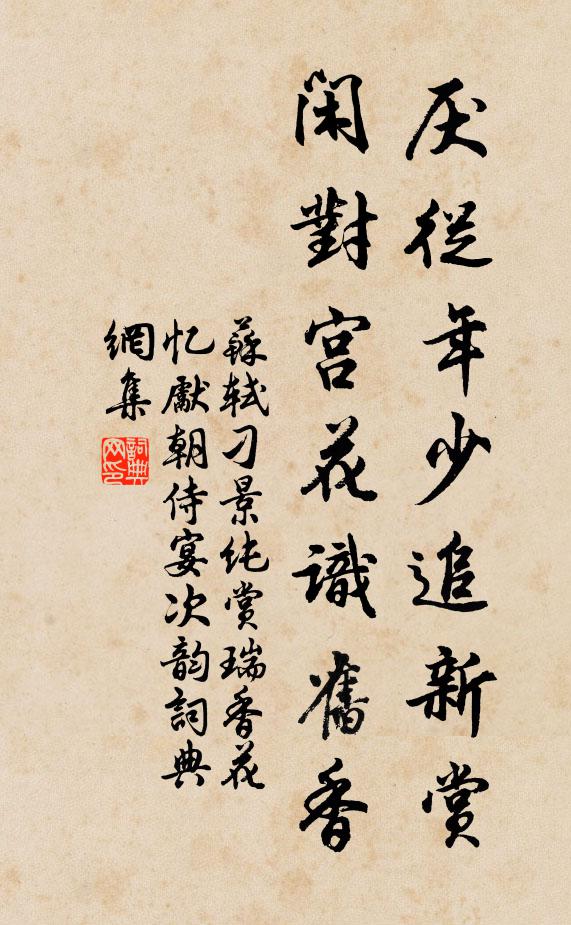 厌從年少追新賞
閑對宫花識舊香
蘇軾刁景純賞瑞香花
忆獻朝侍宴次韵詞典
網集
詞典网印